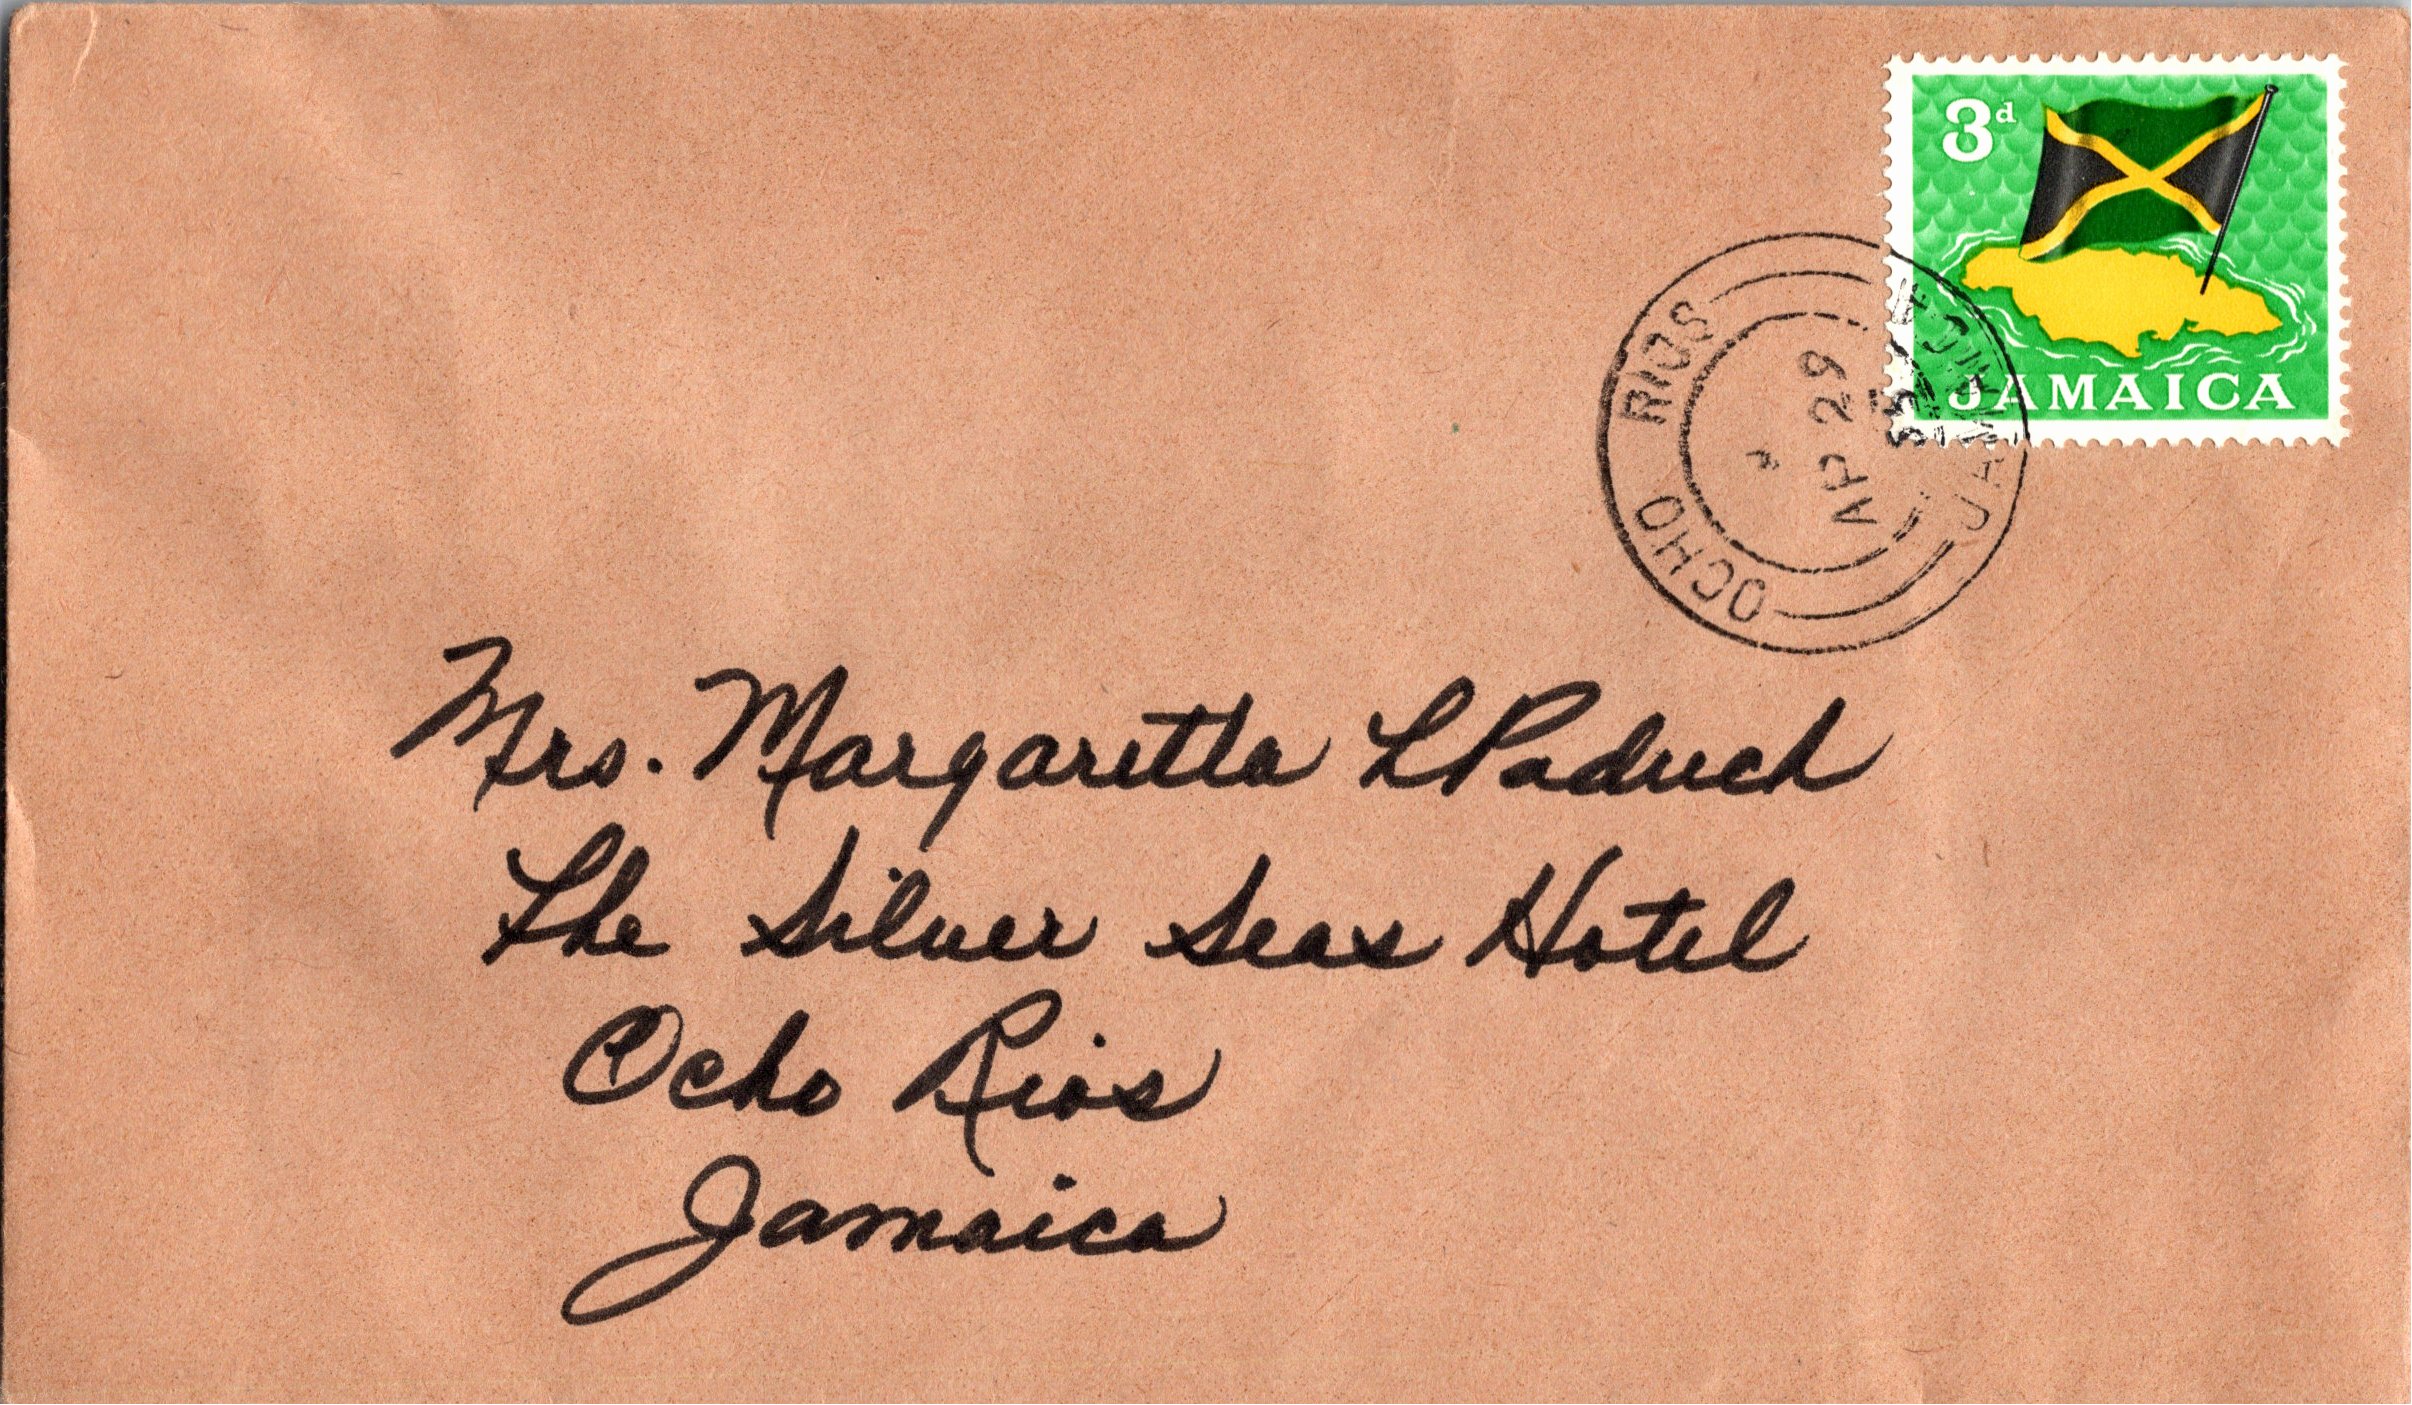 3d
JAMAICA
OCHO RIOS
AP 29
JAMAICA
Mrs. Margaretta L Paduch
The Silver Seas Hotel
Ocho Rios
Jamaica